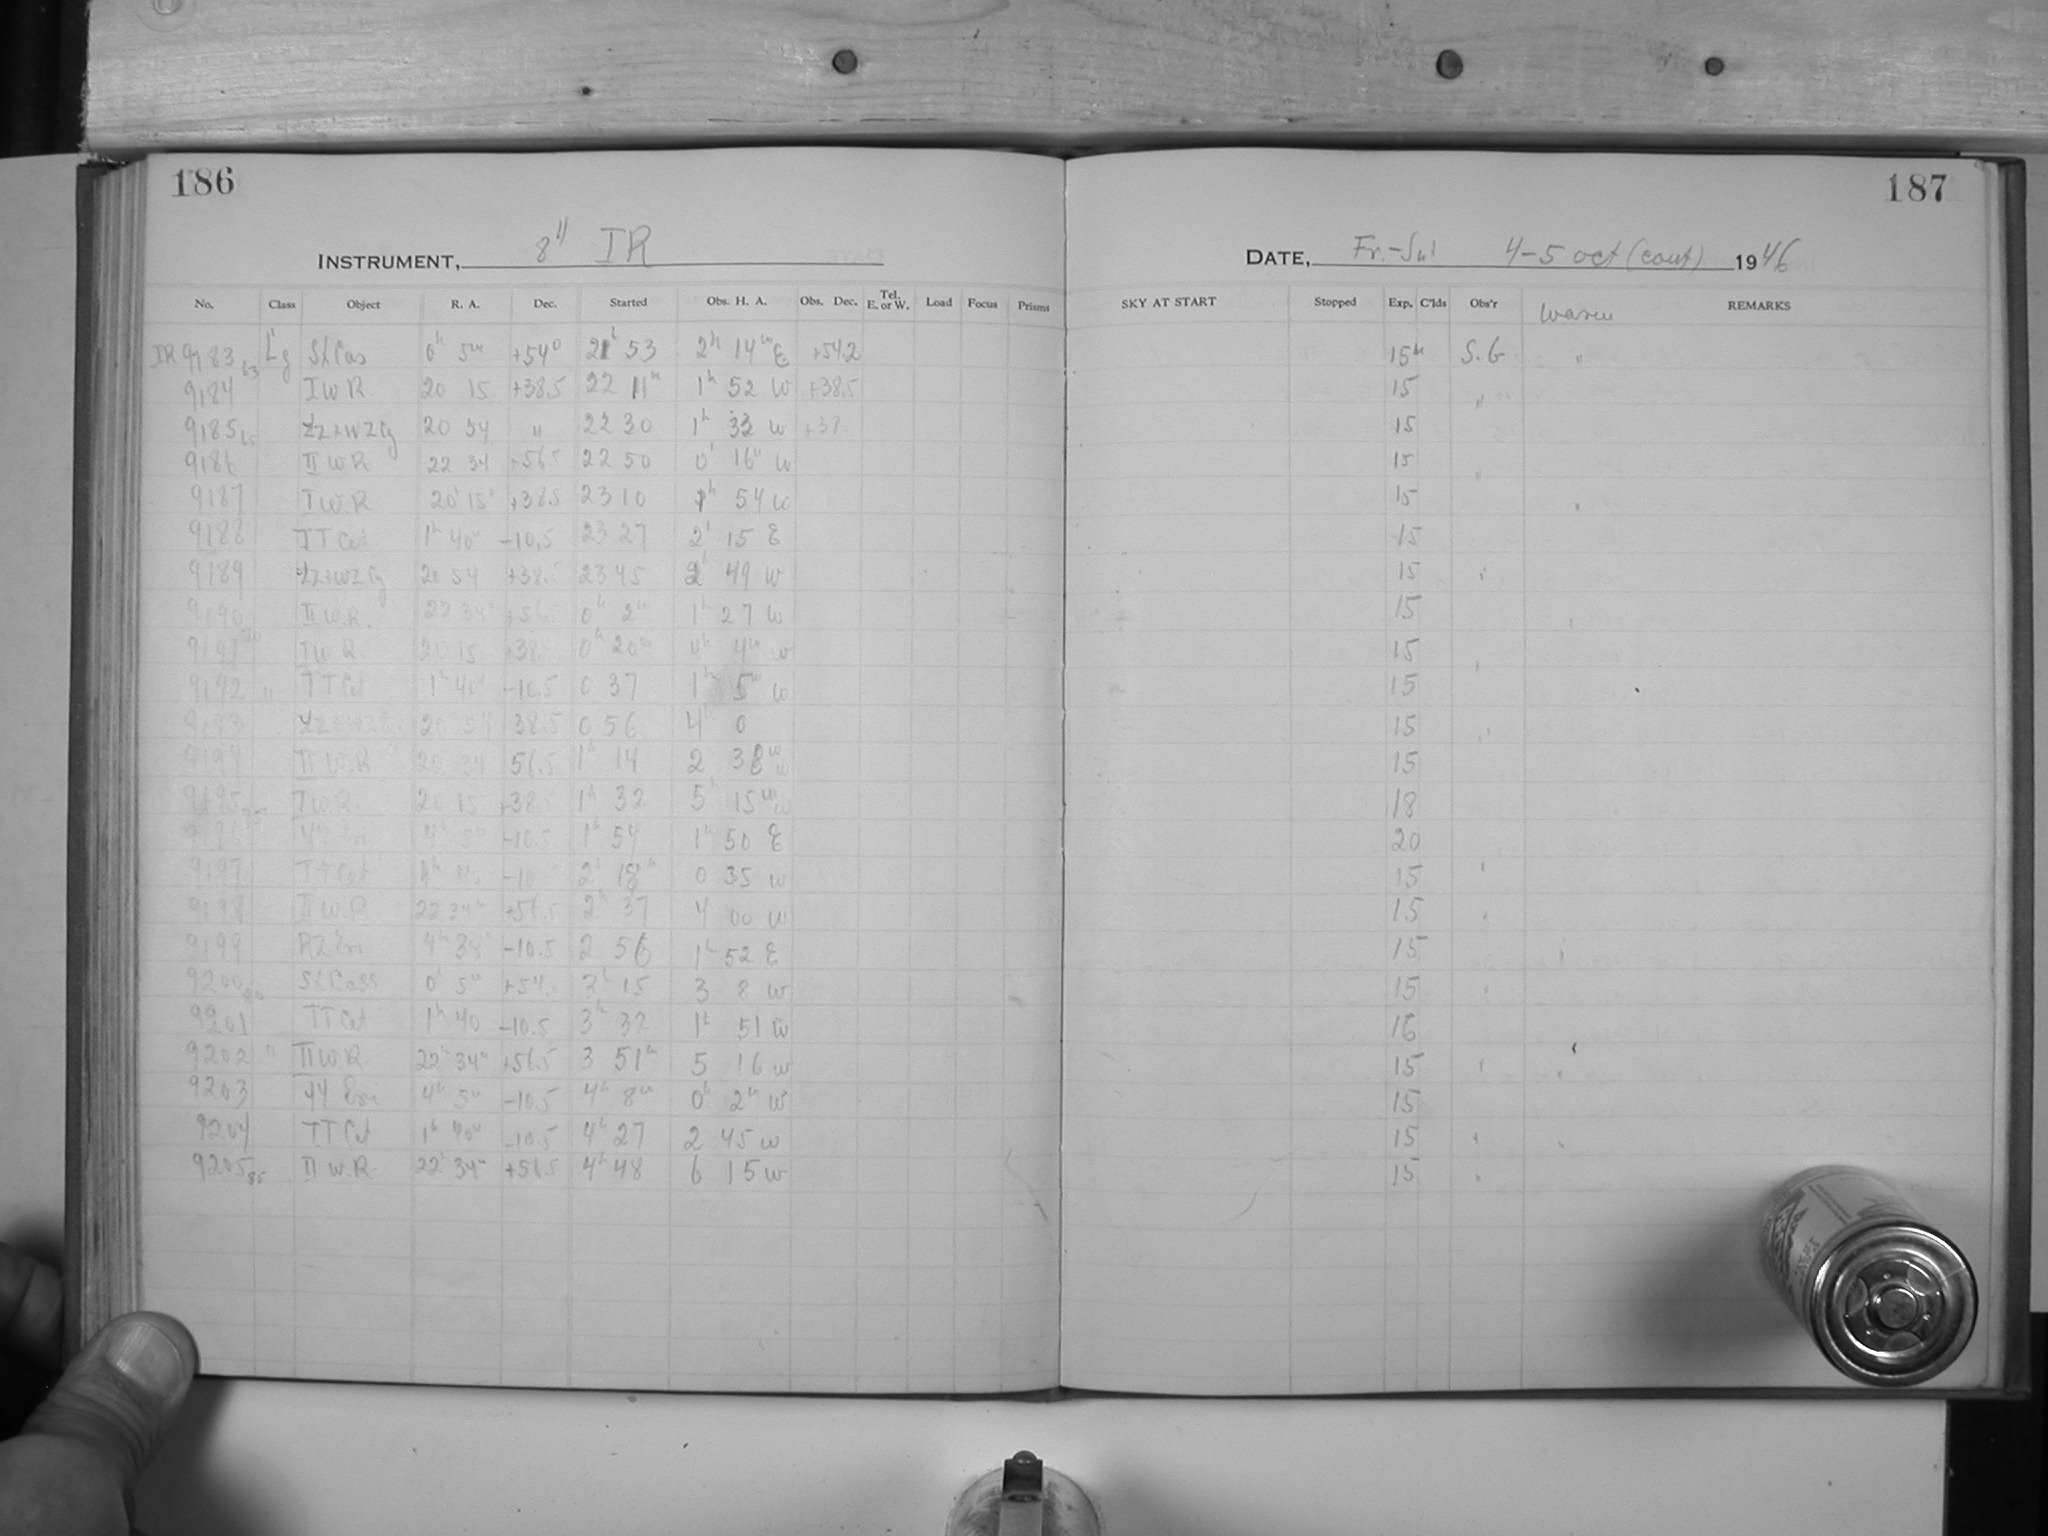 186
187
INSTRUMENT, 8" IR
DATE, 4-5 oct (cont) 1946
No. Class Object R. A. Dec. Started Obs. H. A. Obs. Dec. Tel. E. or W. Load Focus Prisms SKY AT START Stopped Exp. C'lds Obs'r REMARKS
IR 9183 63 0h 5m +54° 21h 53 2h 14m E +54.2 15m S.G.
9184 I W R 20 15 +38.5 22 11m 1h 52 W +38.5 15 "
9185 20 54 " 22 30 1h 33 W +38. 15
9186 II W R 22 34 +56.5 22 50 0h 16m W 15 "
9187 I W.R 20 15 +38.5 23 10 1h 54 W 15
9188 TT Cet 1h 40m -10.5 23 27 2h 15 E 15
9189 20 54 +38.5 23 45 2h 49 W 15
9190 II W.R. 22 34 +56.5 0h 2m 1h 27 W 15
9191 I W R. 20 15 +38.5 0h 20m 0h 4m W 15
9192 " TT Cet 1h 40m -10.5 0 37 1h 5m W 15
9193 20 54 38.5 0 56 4h 0 15
9194 II W.R 22 34 56.5 1h 14 2 38 W 15
9195 I W R 20 15 +38.5 1h 32 5h 15m W 18
9196 -10.5 1h 54 1h 50 E 20
9197 TT Cet 1h 40 -10.5 2h 18m 0 35 W 15
9198 II W.R 22 34m +56.5 2h 37 4 00 W 15
9199 RZ Eri 4h 34m -10.5 2 56 1h 52 E 15
9200 80 0h 5m +54. 3h 15 3 8 W 15
9201 TT Cet 1h 40 -10.5 3h 32 1h 51 W 16
9202 " II W R 22h 34m +56.5 3 51m 5 16 W 15
9203 YY Eri 4h 5m -10.5 4h 8m 0h 2m W 15
9204 TT Cet 1h 40m -10.5 4h 27 2 45 W 15
9205 85 II W.R. 22h 34m +56.5 4h 48 6 15 W 15